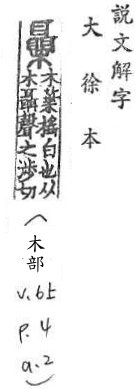 説文解字
大徐本
木葉榣白也从
木聶聲之涉切
(木部
v.6上
p.4
a.2)